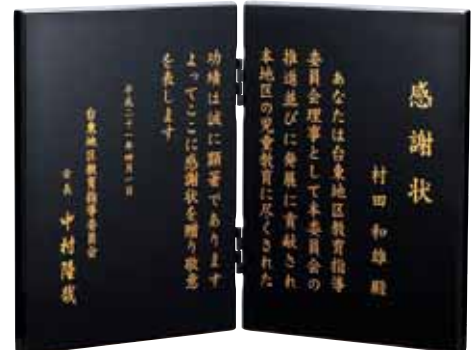 感謝状
村田和雄殿
あなたは台東地区教育指導
委員会理事として本委員会の
推進並びに発展に貢献され
本地区の児童教育に尽くされた
功績は誠に顕著であります
よってここに感謝状を贈り敬意
を表します
平成二十一年四月一日
台東地区教育指導委員会
会長 中村隆哉